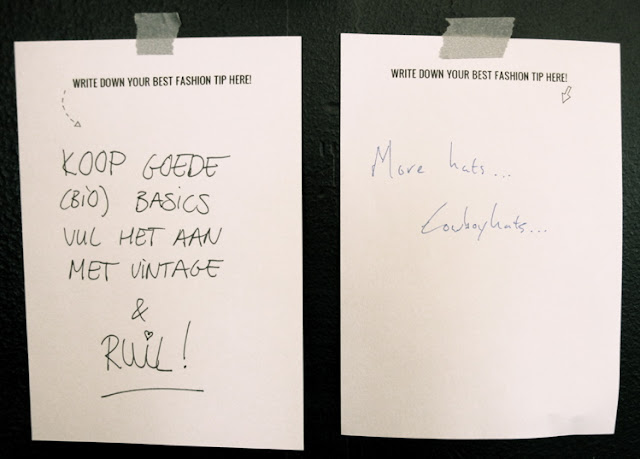 WRITE DOWN YOUR BEST FASHION TIP HERE!
KOOP GOEDE
(BIO) BASICS
VUL HET AAN
MET VINTAGE
&
RUIL!
WRITE DOWN YOUR BEST FASHION TIP HERE!
More hats...
Cowboyhats...